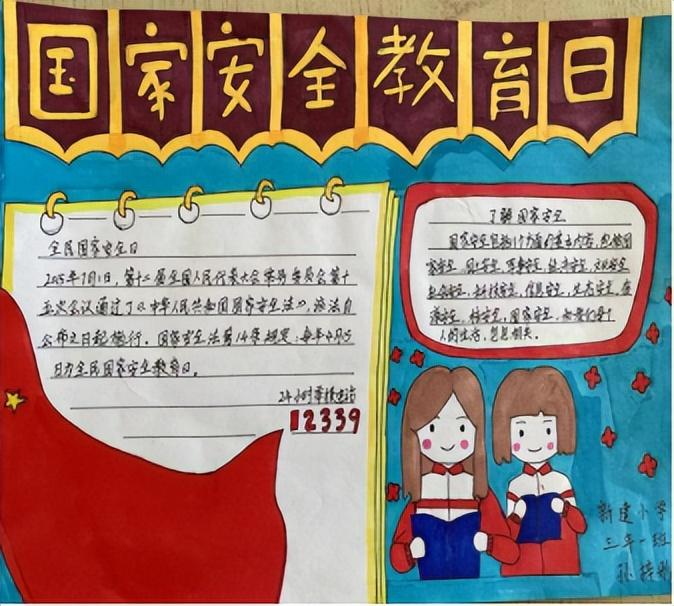 国家安全教育日
全民国家安全日
2015年7月1日，第十二届全国人民代表大会常务委员会第十
五次会议通过了《中华人民共和国国家安全法》，该法自
公布之日起施行。国家安全法第14条规定，每年4月15
日为全民国家安全教育日。
24小时举报电话
12339
了解国家安全
国家安全包括11个方面的基本内容，包括国
家安全、国土安全、军事安全、经济安全、文化安全
社会安全、科技安全、信息安全、生态安全、资
源安全、核安全，国家安全，与我们每个
人的生活，息息相关。
新建小学
三年一班
孙梓